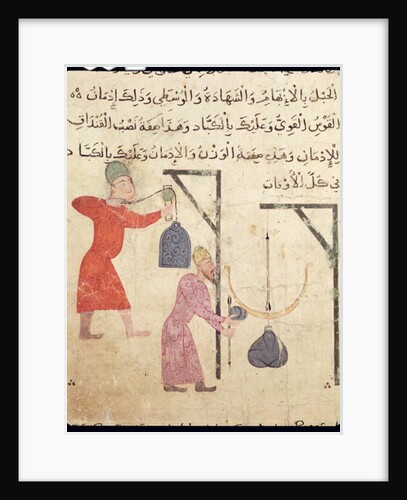 الحبل بالإبهام والشهادة والوسطى وذلك إدمان
القوس القوي وعليك بالكباد وهذا صفة نصب القنداق
للإدمان وهذه صفة الوزن والإدمان وعليك بالكباد
في كل الأوقات